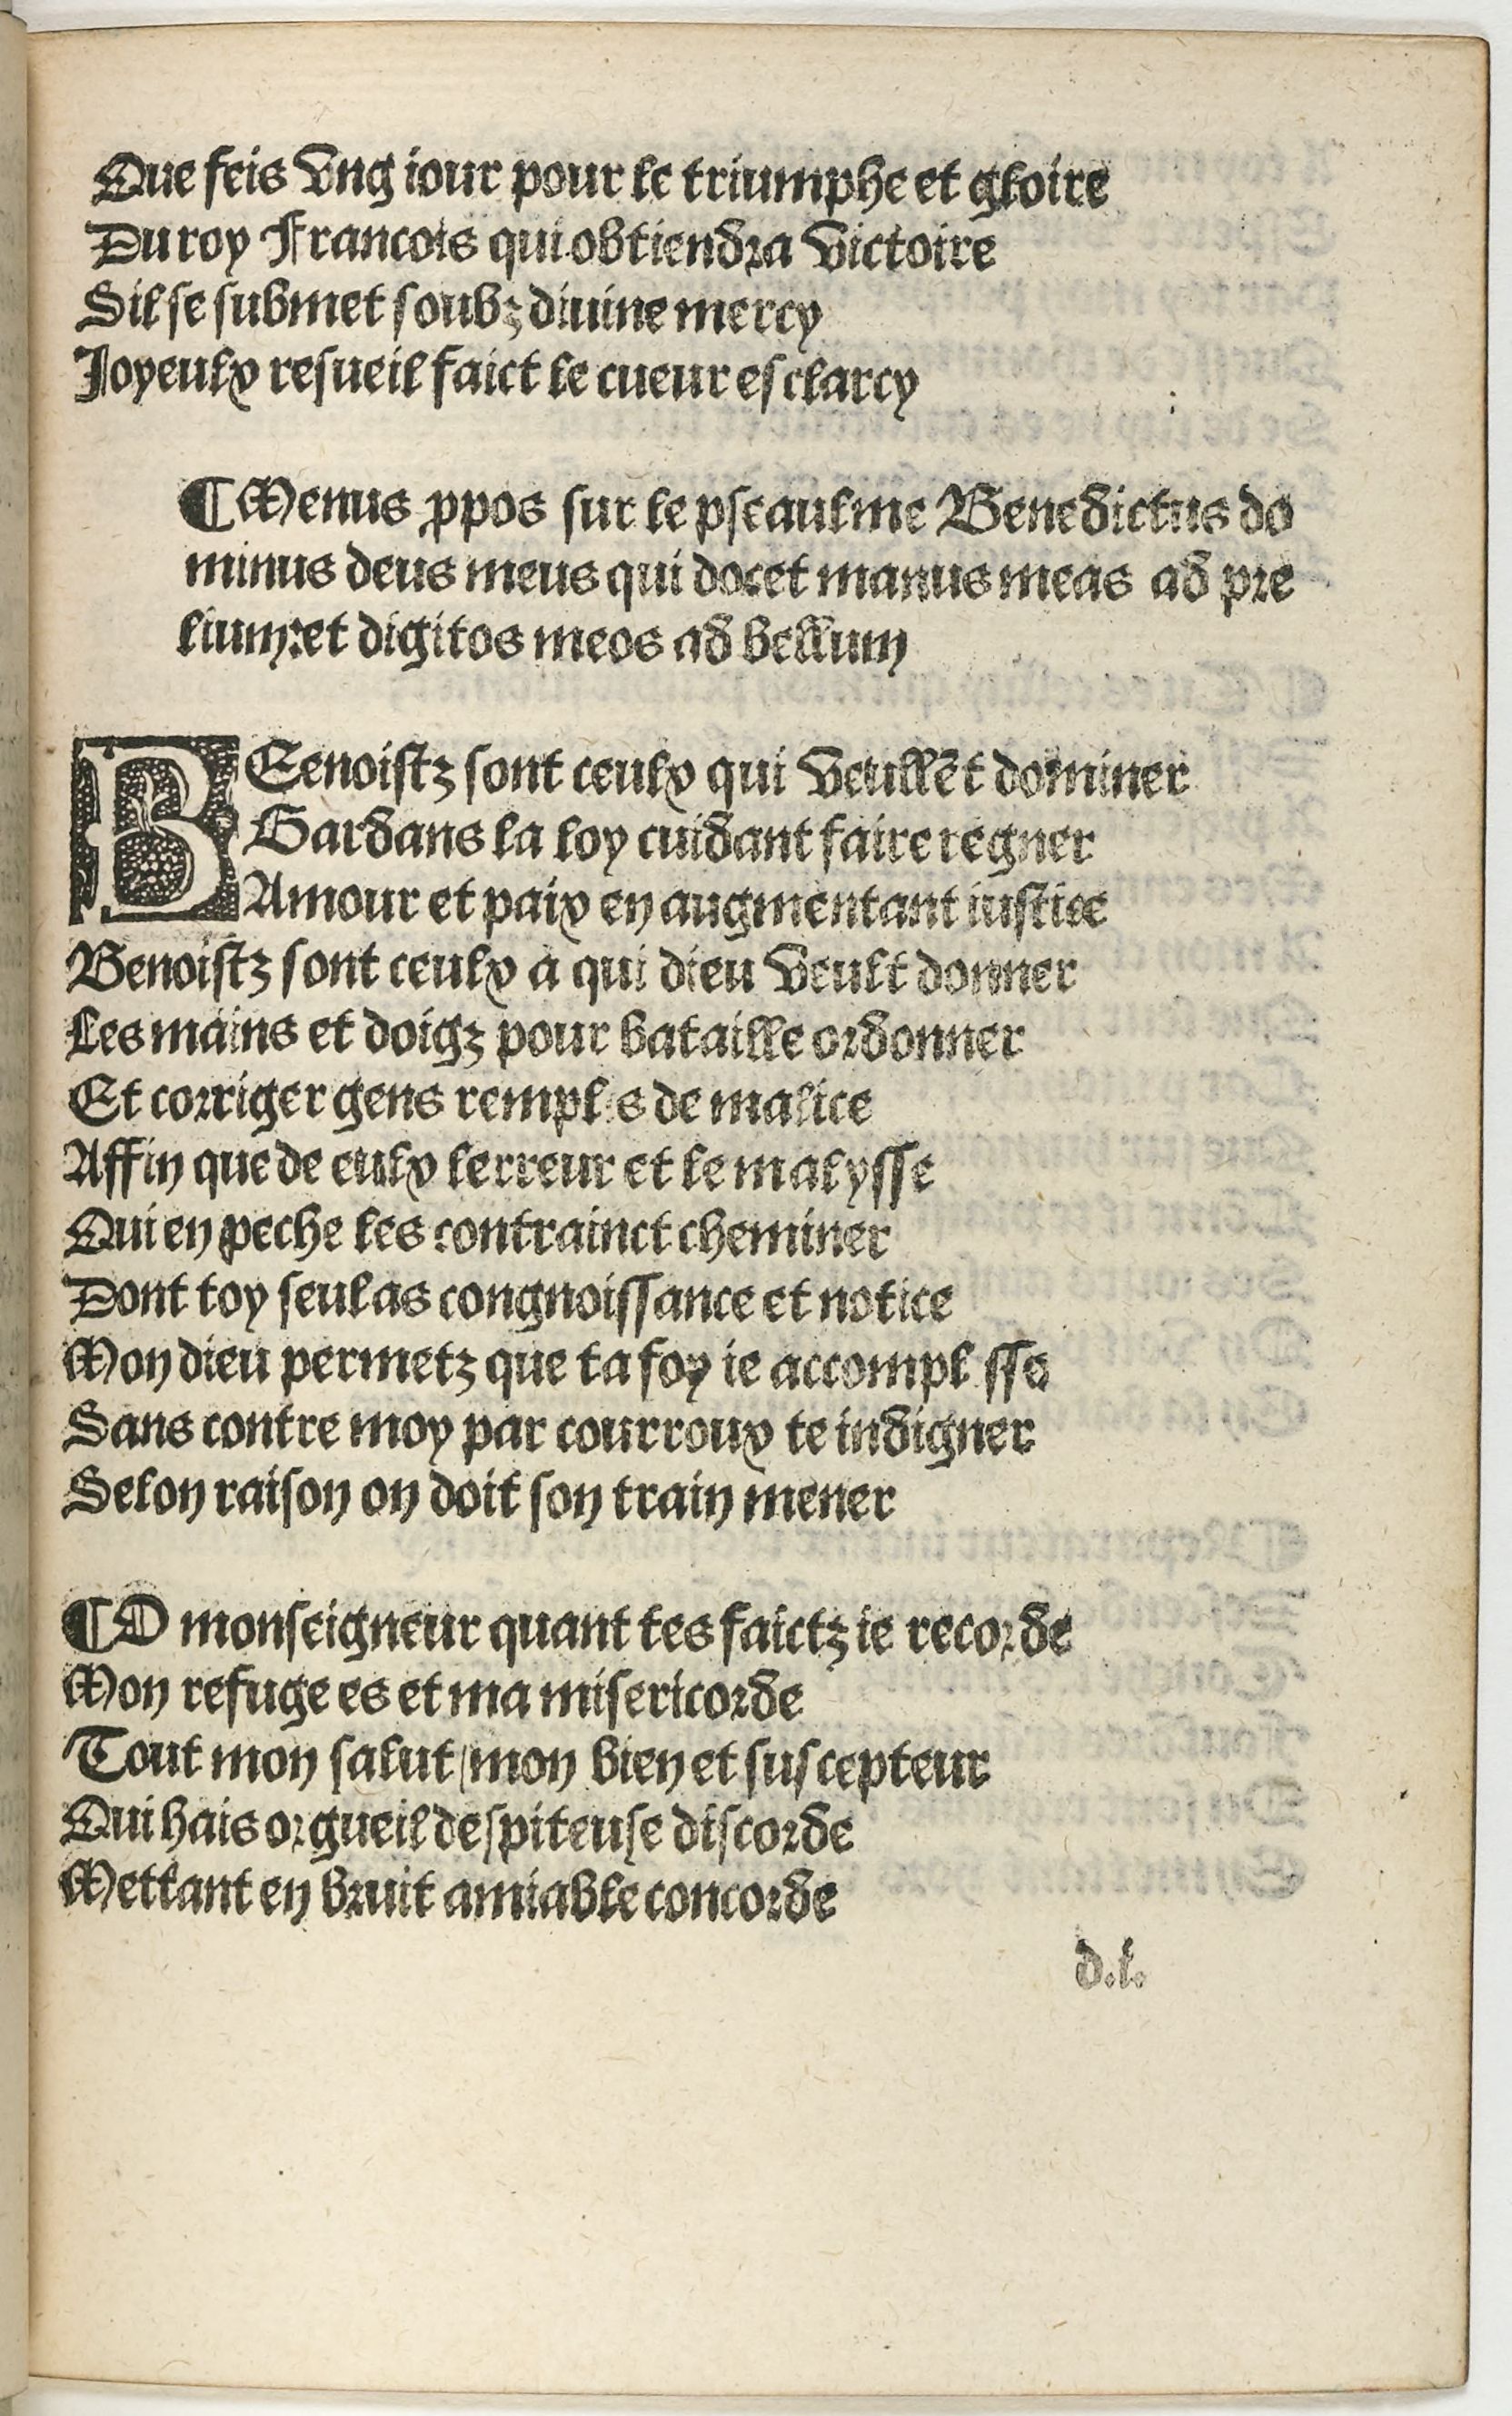 Que feis vng iour pour le triumphe et gloire
Du roy Francois qui obtiendra victoire
Sil se submet soubz diuine mercy
Joyeulx resueil faict le cueur esclarcy
¶ Menus ꝓpos sur le pseaulme Benedictus do
minus deus meus qui docet manus meas ad pre
lium: et digitos meos ad bellum
BEenoistz sont ceulx qui veullẽt dominer
Gardans la loy cuidant faire regner
Amour et paix en augmentant iustice
Benoistz sont ceulx a qui dieu veult donner
Les mains et doigz pour bataille ordonner
Et corriger gens remplis de malice
Affin que de eulx lerreur et le malysse
Qui en peche les contrainct cheminer
Dont toy seul as congnoissance et notice
Mon dieu permetz que ta foy ie accomplisse
Sans contre moy par courroux te indigner
Selon raison on doit son train mener
¶ O monseigneur quant tes faictz ie recorde
Mon refuge es et ma misericorde
Tout mon salut / mon bien et suscepteur
Qui hais orgueil despiteuse discorde
Mettant en bruit amiable concorde
d.i.